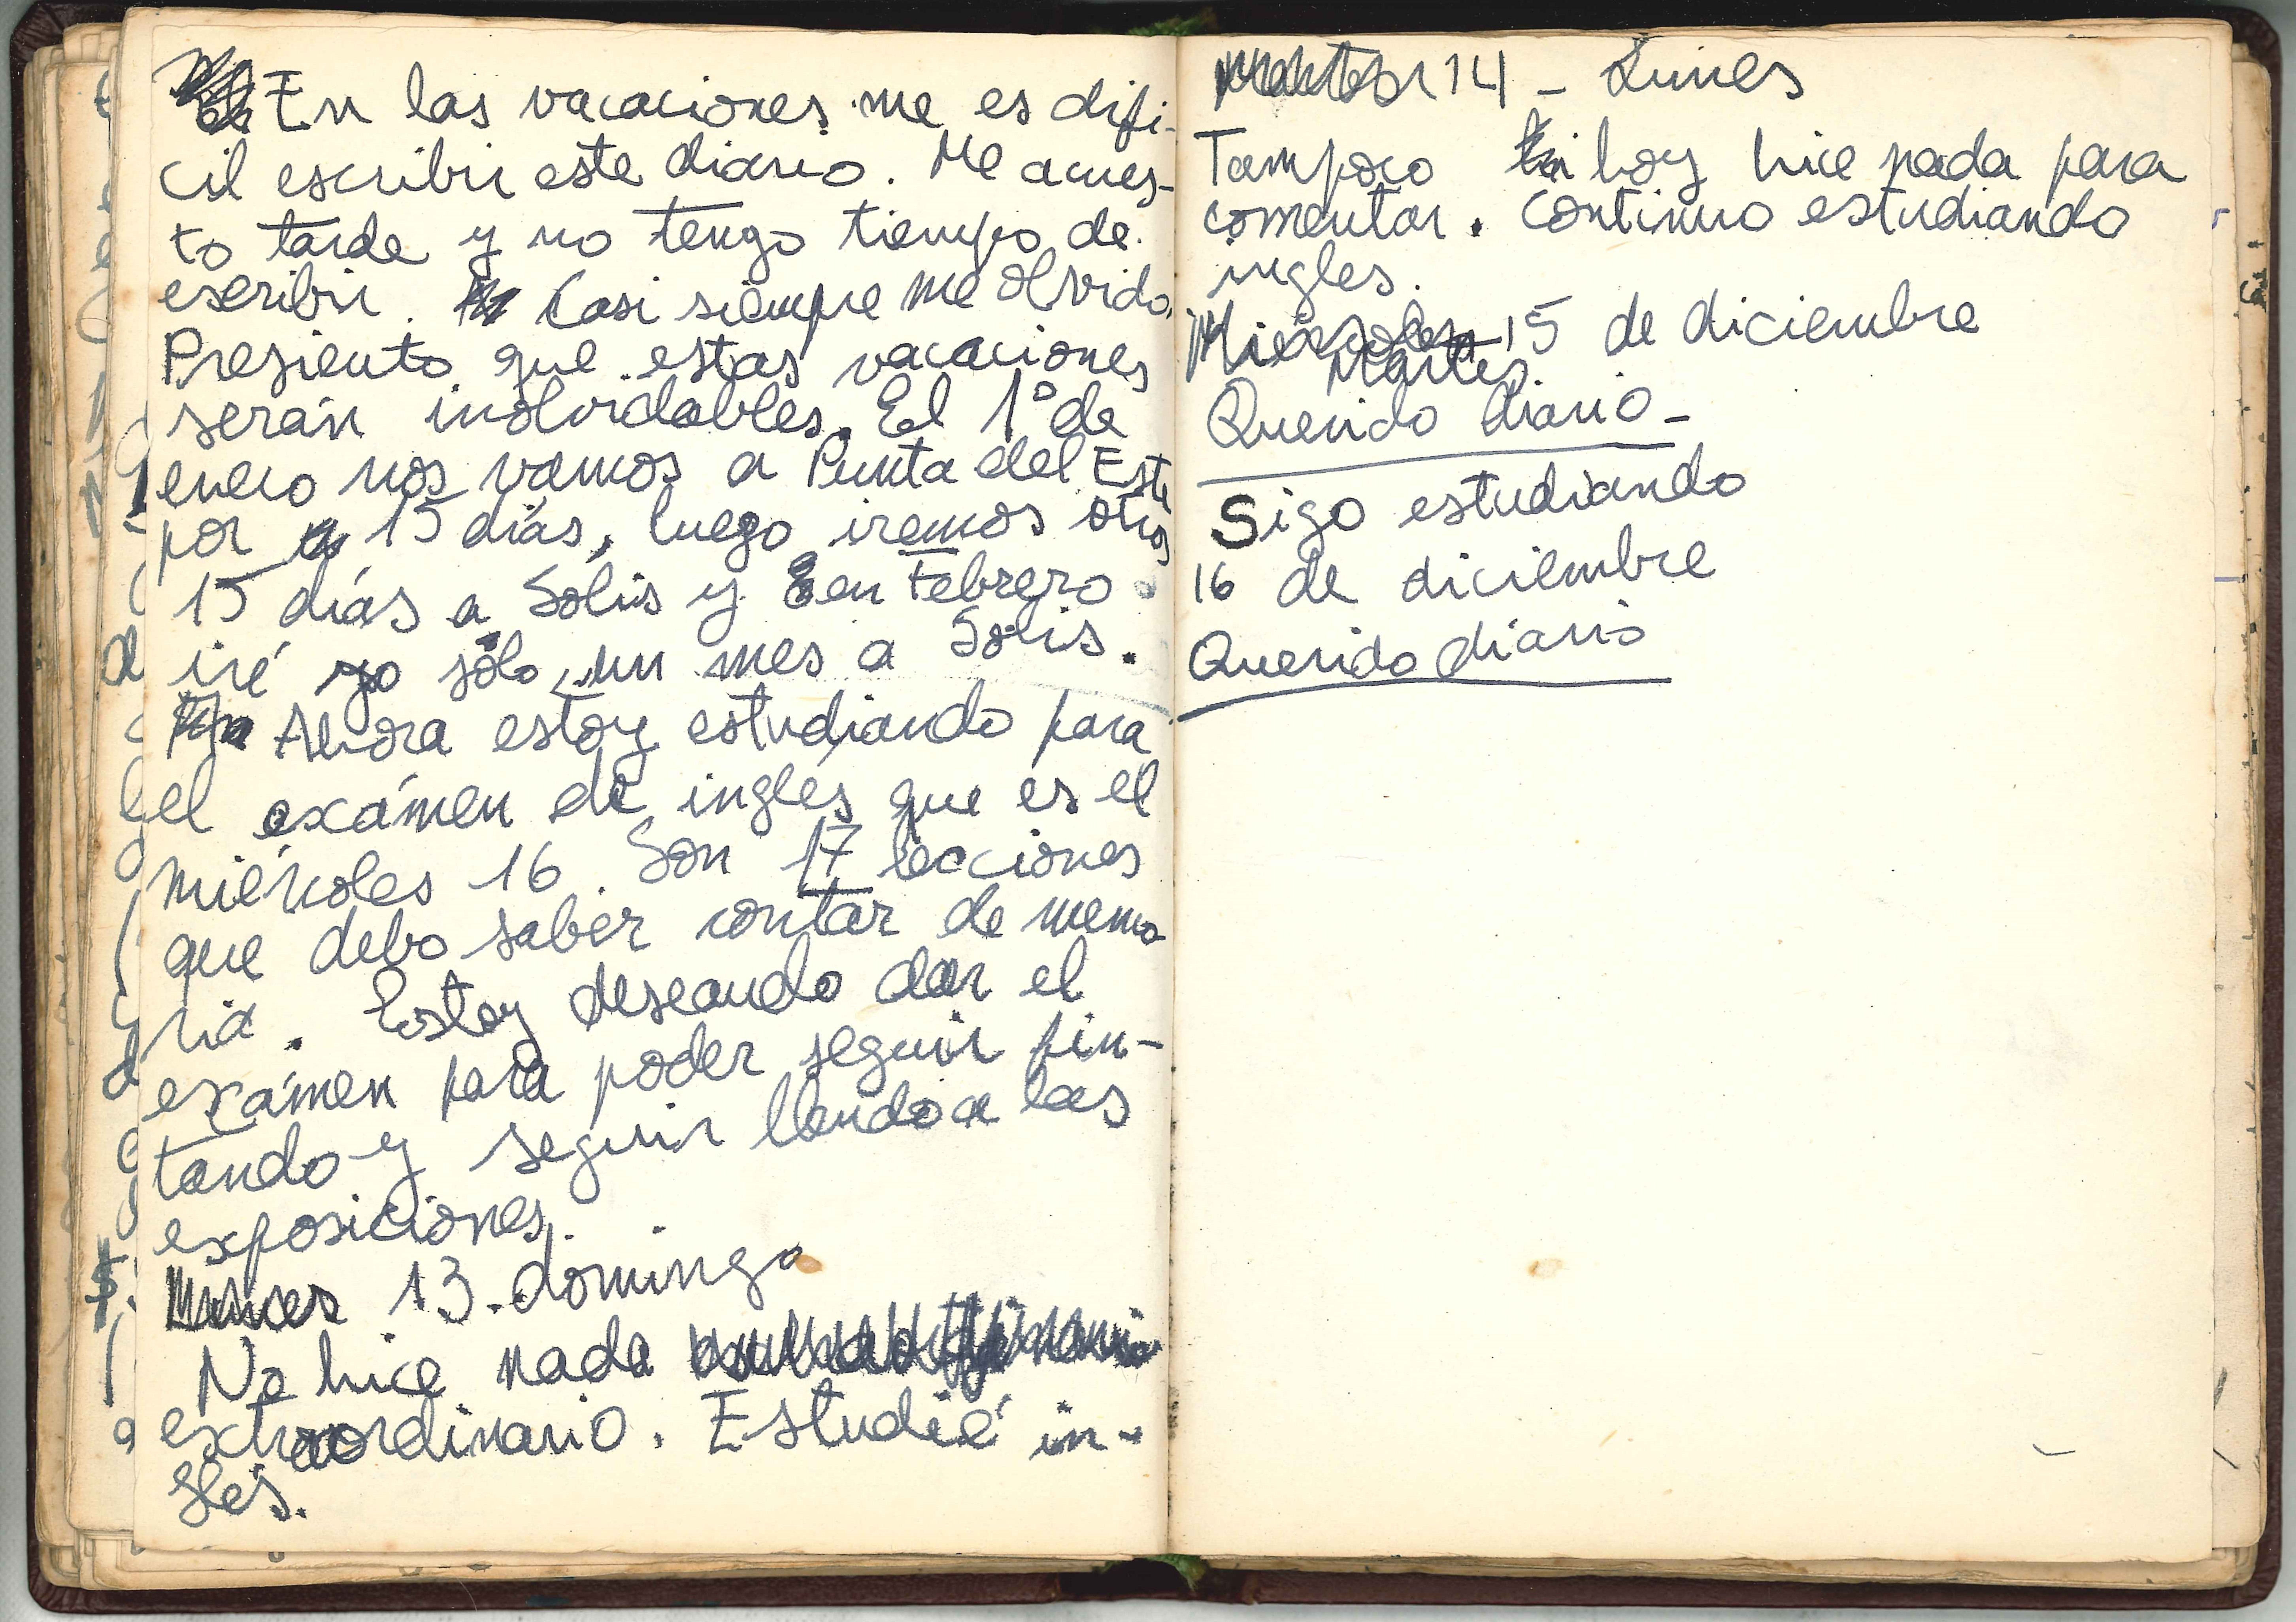 En las vacaciones me es difi-
cil escribir este diario. Me acues-
to tarde y no tengo tiempo de
escribir. Casi siempre me olvido.
Presiento que estas vacaciones
serán inolvidables. El 1° de
enero nos vamos a Punta del Este
por 15 días, luego iremos otros
15 días a Solís y en Febrero
iré yo sólo un mes a Solís.
Ahora estoy estudiando para
el exámen de inglés que es el
miércoles 16. Son 17 lecciones
que debo saber contar de memo-
ria. Estoy deseando dar el
exámen para poder seguir pin-
tando y seguir llendo a las
exposiciones.
13. domingo
No hice nada
extraordinario. Estudié in-
glés.
14 - Lunes
Tampoco hoy hice nada para
comentar. Continuo estudiando
ingles.
Miércoles 15 de diciembre
Martes.
Querido diario -
Sigo estudiando
16 de diciembre
Querido diario